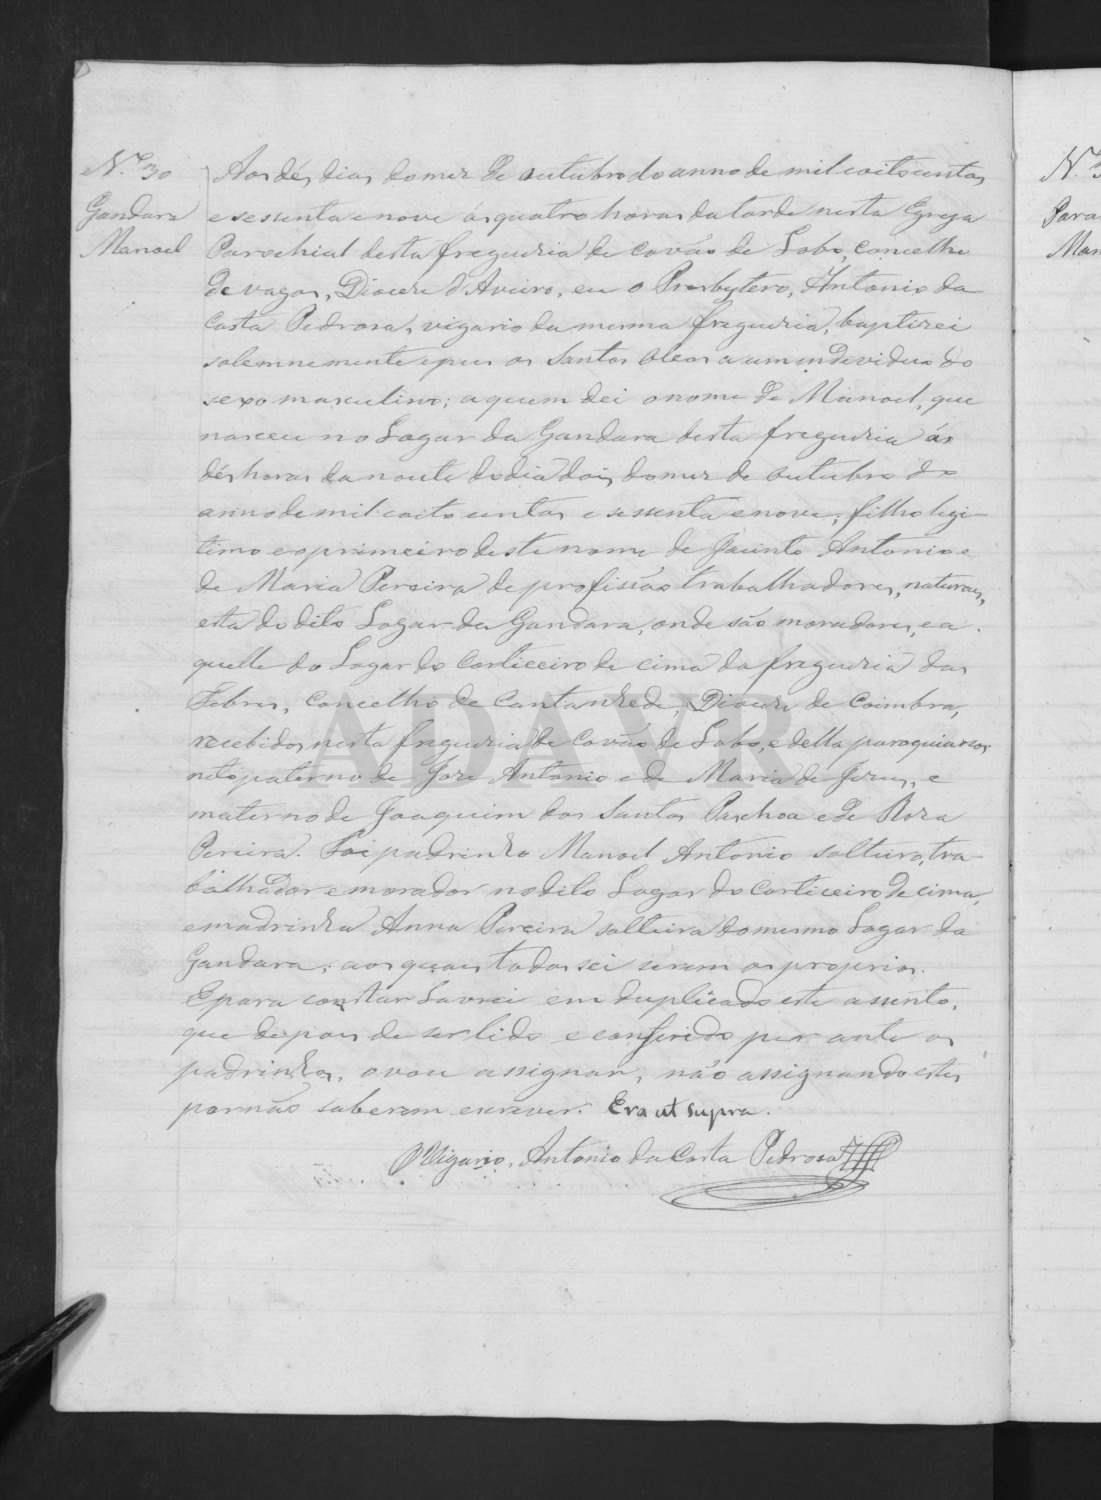 N.º 30
Gandara
Manoel
Aos dés dias do mez de outubro do anno de mil e oitocentos
e sessenta e nove ás quatro horas da tarde nesta Egreja
Parochial desta freguezia de Covão de Lobo, concelho
de Vagos, Diocese d'Aveiro, eu o Presbytero, Antonio da
Costa Pedrosa, vigario da mesma freguezia, baptizei
solemnemente e puz os Santos Oleos a um individuo do
sexo masculino; a quem dei o nome de Manoel, que
nasceu no Logar da Gandara desta freguezia ás
dés horas da noute do dia dois do mez de outubro do
anno de mil e oitocentos e sessenta e nove; filho legi-
timo e o primeiro deste nome de Jacinto Antonio e
de Maria Pereira de profissão trabalhadores, naturaes,
esta do dito Logar da Gandara, onde são moradores, e a
quelle do Logar do Corticeiro de cima da freguezia das
Febres, Concelho de Cantanhede, Diocese de Coimbra,
recebidos nesta freguezia de Covão de Lobo, e della paroquianos
neto paterno de Joze Antonio e de Maria de Jezus, e
materno de Joaquim dos Santos Paschoa e de Roza
Pereira. Foi padrinho Manoel Antonio solteiro, tra-
balhador e morador no dito Logar do Corticeiro de cima,
e madrinha Anna Pereira solteira do mesmo Logar da
Gandara; aos quaes todos sei serem os proprios.
E para constar Lavrei em duplicado este assento,
que depois de ser lido e conferido perante os
padrinhos, o vou assignar, não assignando estes
por não saberem escrever. Era ut supra.
O Vigario, Antonio da Costa Pedrosa
ADAVR
N.º 3
Para
Man